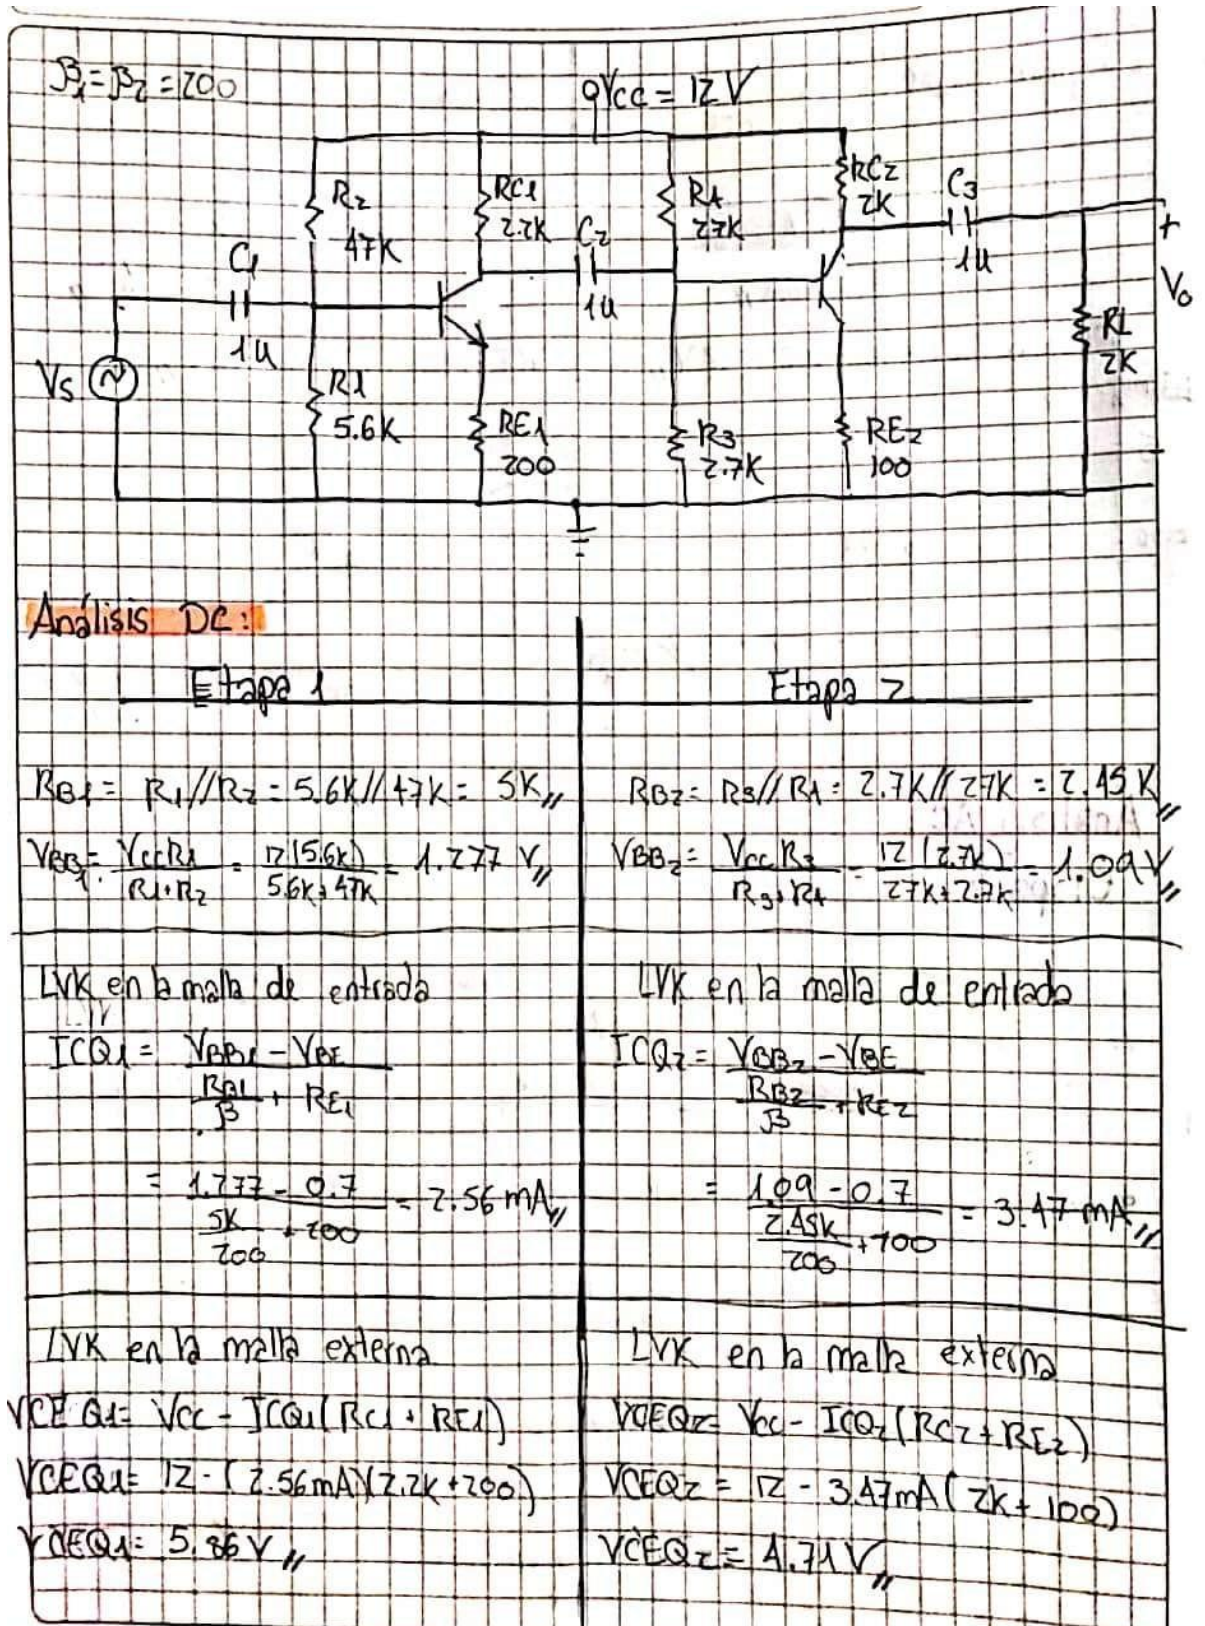 β1=β2=200
Vcc = 12V
R2
47K
RC1
2.2K
R4
27K
RC2
2K
C3
1u
C1
1u
C2
1u
+
Vo
-
RL
2K
Vs
R1
5.6K
RE1
200
R3
2.7K
RE2
100
Análisis DC:
Etapa 1
RB1 = R1//R2 = 5.6K//47K = 5K
VBB1 = VccR1 / R1+R2 = 12(5.6K) / 5.6K+47K = 1.277 V
LVK en la malla de entrada
ICQ1 = VBB1 - VBE / RB1/β + RE1
= 1.277 - 0.7 / 5K/200 + 200 = 2.56 mA
LVK en la malla externa
VCEQ1 = Vcc - ICQ1(RC1 + RE1)
VCEQ1 = 12 - (2.56mA)(2.2K+200)
VCEQ1 = 5.86 V
Etapa 2
RB2 = R3//R4 = 2.7K//27K = 2.45 K
VBB2 = Vcc R3 / R3+R4 = 12 (2.7K) / 27K+2.7K = 1.09 V
LVK en la malla de entrada
ICQ2 = VBB2 - VBE / RB2/β + RE2
= 1.09 - 0.7 / 2.45K/200 + 100 = 3.47 mA
LVK en la malla externa
VCEQ2 = Vcc - ICQ2(RC2 + RE2)
VCEQ2 = 12 - 3.47mA(2K + 100)
VCEQ2 = 4.71 V